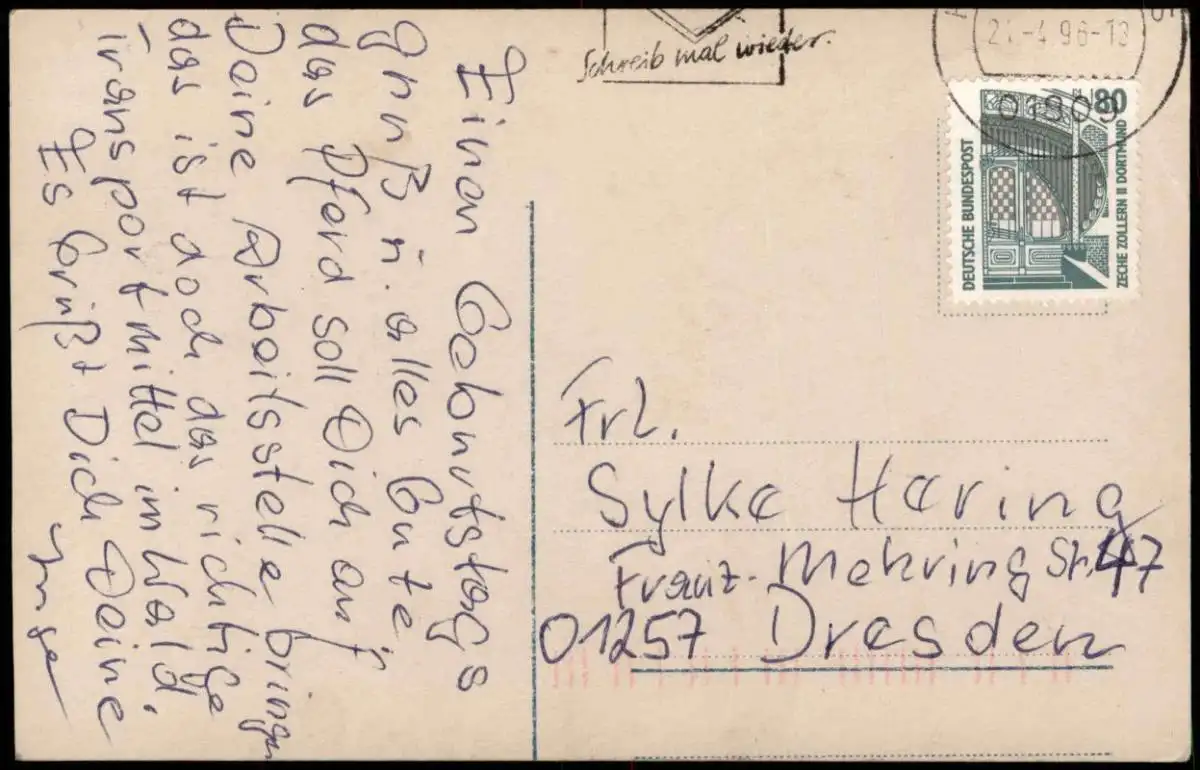 Einen Geburtstags
gruß u. alles Gute,
das Pferd soll Dich auf
Deine Arbeitsstelle bringen
das ist doch das richtige
Transportmittel im Wald.
Es Grüßt Dich Deine
Inge
Schreib mal wieder.
-4.96-18
DEUTSCHE BUNDESPOST
80
ZECHE ZOLLERN II DORTMUND
Frl.
Sylke Hering
Franz-Mehring Str. 47
01257 Dresden